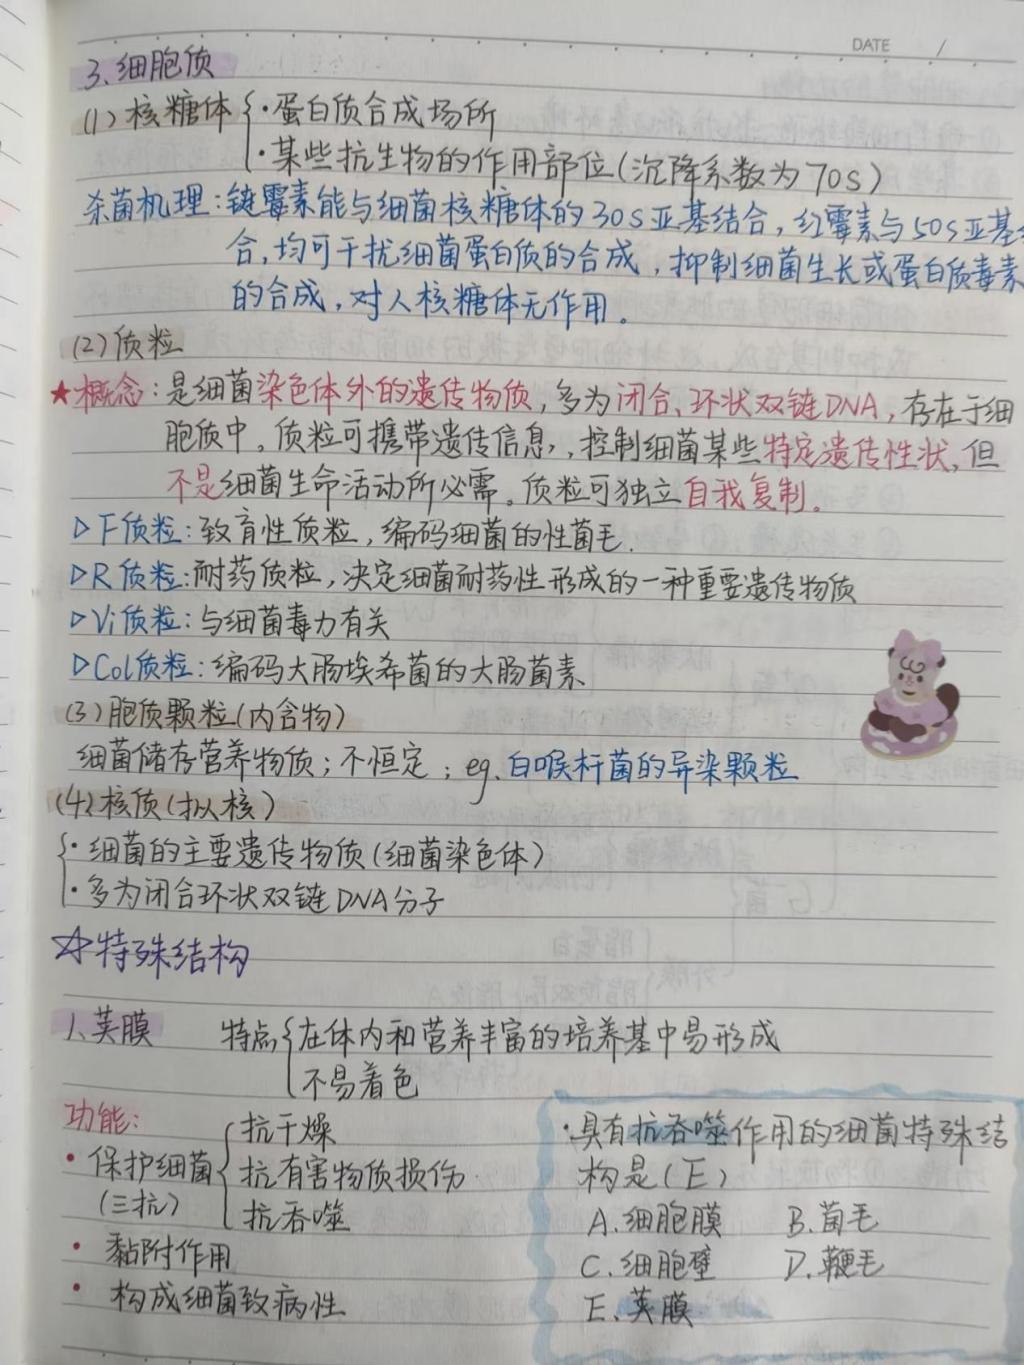 DATE /
3.细胞质
(1)核糖体{·蛋白质合成场所
·某些抗生物的作用部位(沉降系数为70S)
杀菌机理:链霉素能与细菌核糖体的30S亚基结合,红霉素与50S亚基结
合,均可干扰细菌蛋白质的合成,抑制细菌生长或蛋白质毒素
的合成,对人核糖体无作用。
(2)质粒
★概念:是细菌染色体外的遗传物质,多为闭合、环状双链DNA,存在于细
胞质中。质粒可携带遗传信息,,控制细菌某些特定遗传性状,但
不是细菌生命活动所必需。质粒可独立自我复制。
▷F质粒:致育性质粒,编码细菌的性菌毛.
▷R质粒:耐药质粒,决定细菌耐药性形成的一种重要遗传物质
▷Vi质粒:与细菌毒力有关
▷Col质粒:编码大肠埃希菌的大肠菌素
(3)胞质颗粒(内含物)
细菌储存营养物质;不恒定;eg.白喉杆菌的异染颗粒
(4)核质(拟核)
{·细菌的主要遗传物质(细菌染色体)
·多为闭合环状双链DNA分子
☆特殊结构
1.荚膜 特点{在体内和营养丰富的培养基中易形成
不易着色
功能:
·保护细菌(三抗){抗干燥
抗有害物质损伤
抗吞噬
·黏附作用
·构成细菌致病性
·具有抗吞噬作用的细菌特殊结
构是(E)
A.细胞膜 B.菌毛
C.细胞壁 D.鞭毛
E.荚膜